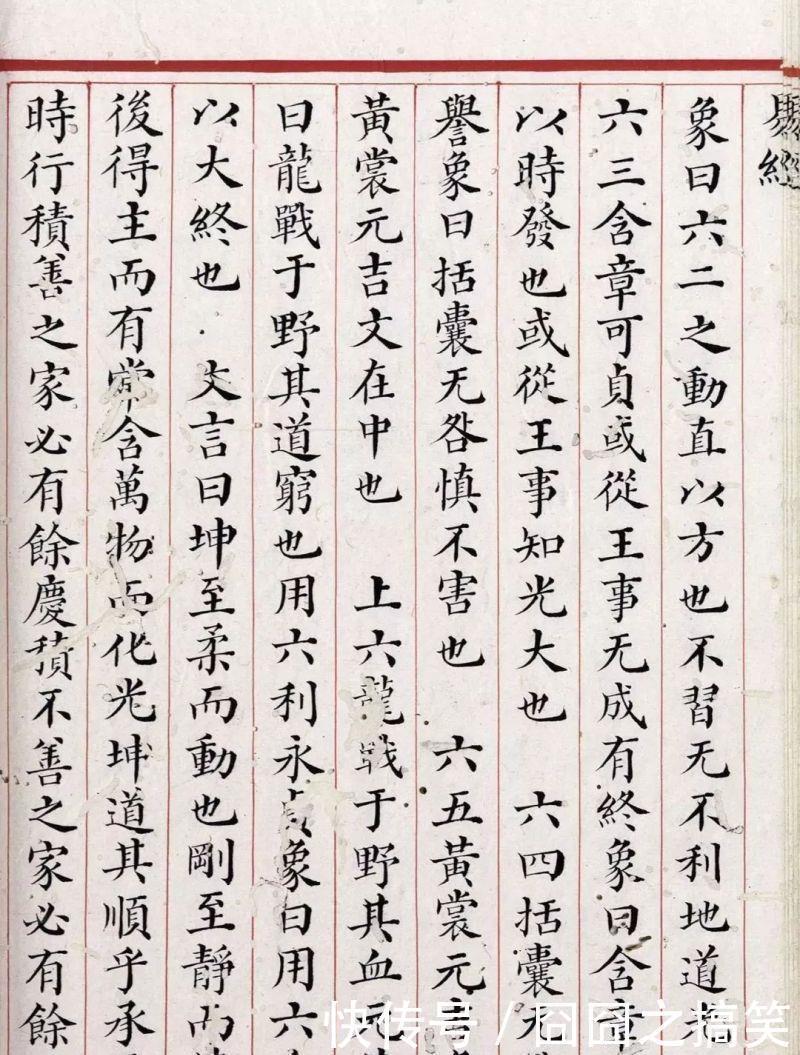 經
象曰六二之動直以方也不習无不利地道光
六三含章可貞或從王事无成有終象曰含章
以時發也或從王事知光大也 六四括囊无
譽象曰括囊无咎慎不害也 六五黃裳元吉
黃裳元吉文在中也 上六龍戰于野其血
曰龍戰于野其道窮也用六利永貞象曰用六
以大終也 文言曰坤至柔而動也剛至靜而
後得主而有常含萬物而化光坤道其順乎承
時行積善之家必有餘慶積不善之家必有餘
快传号 / 囧囧之搞笑